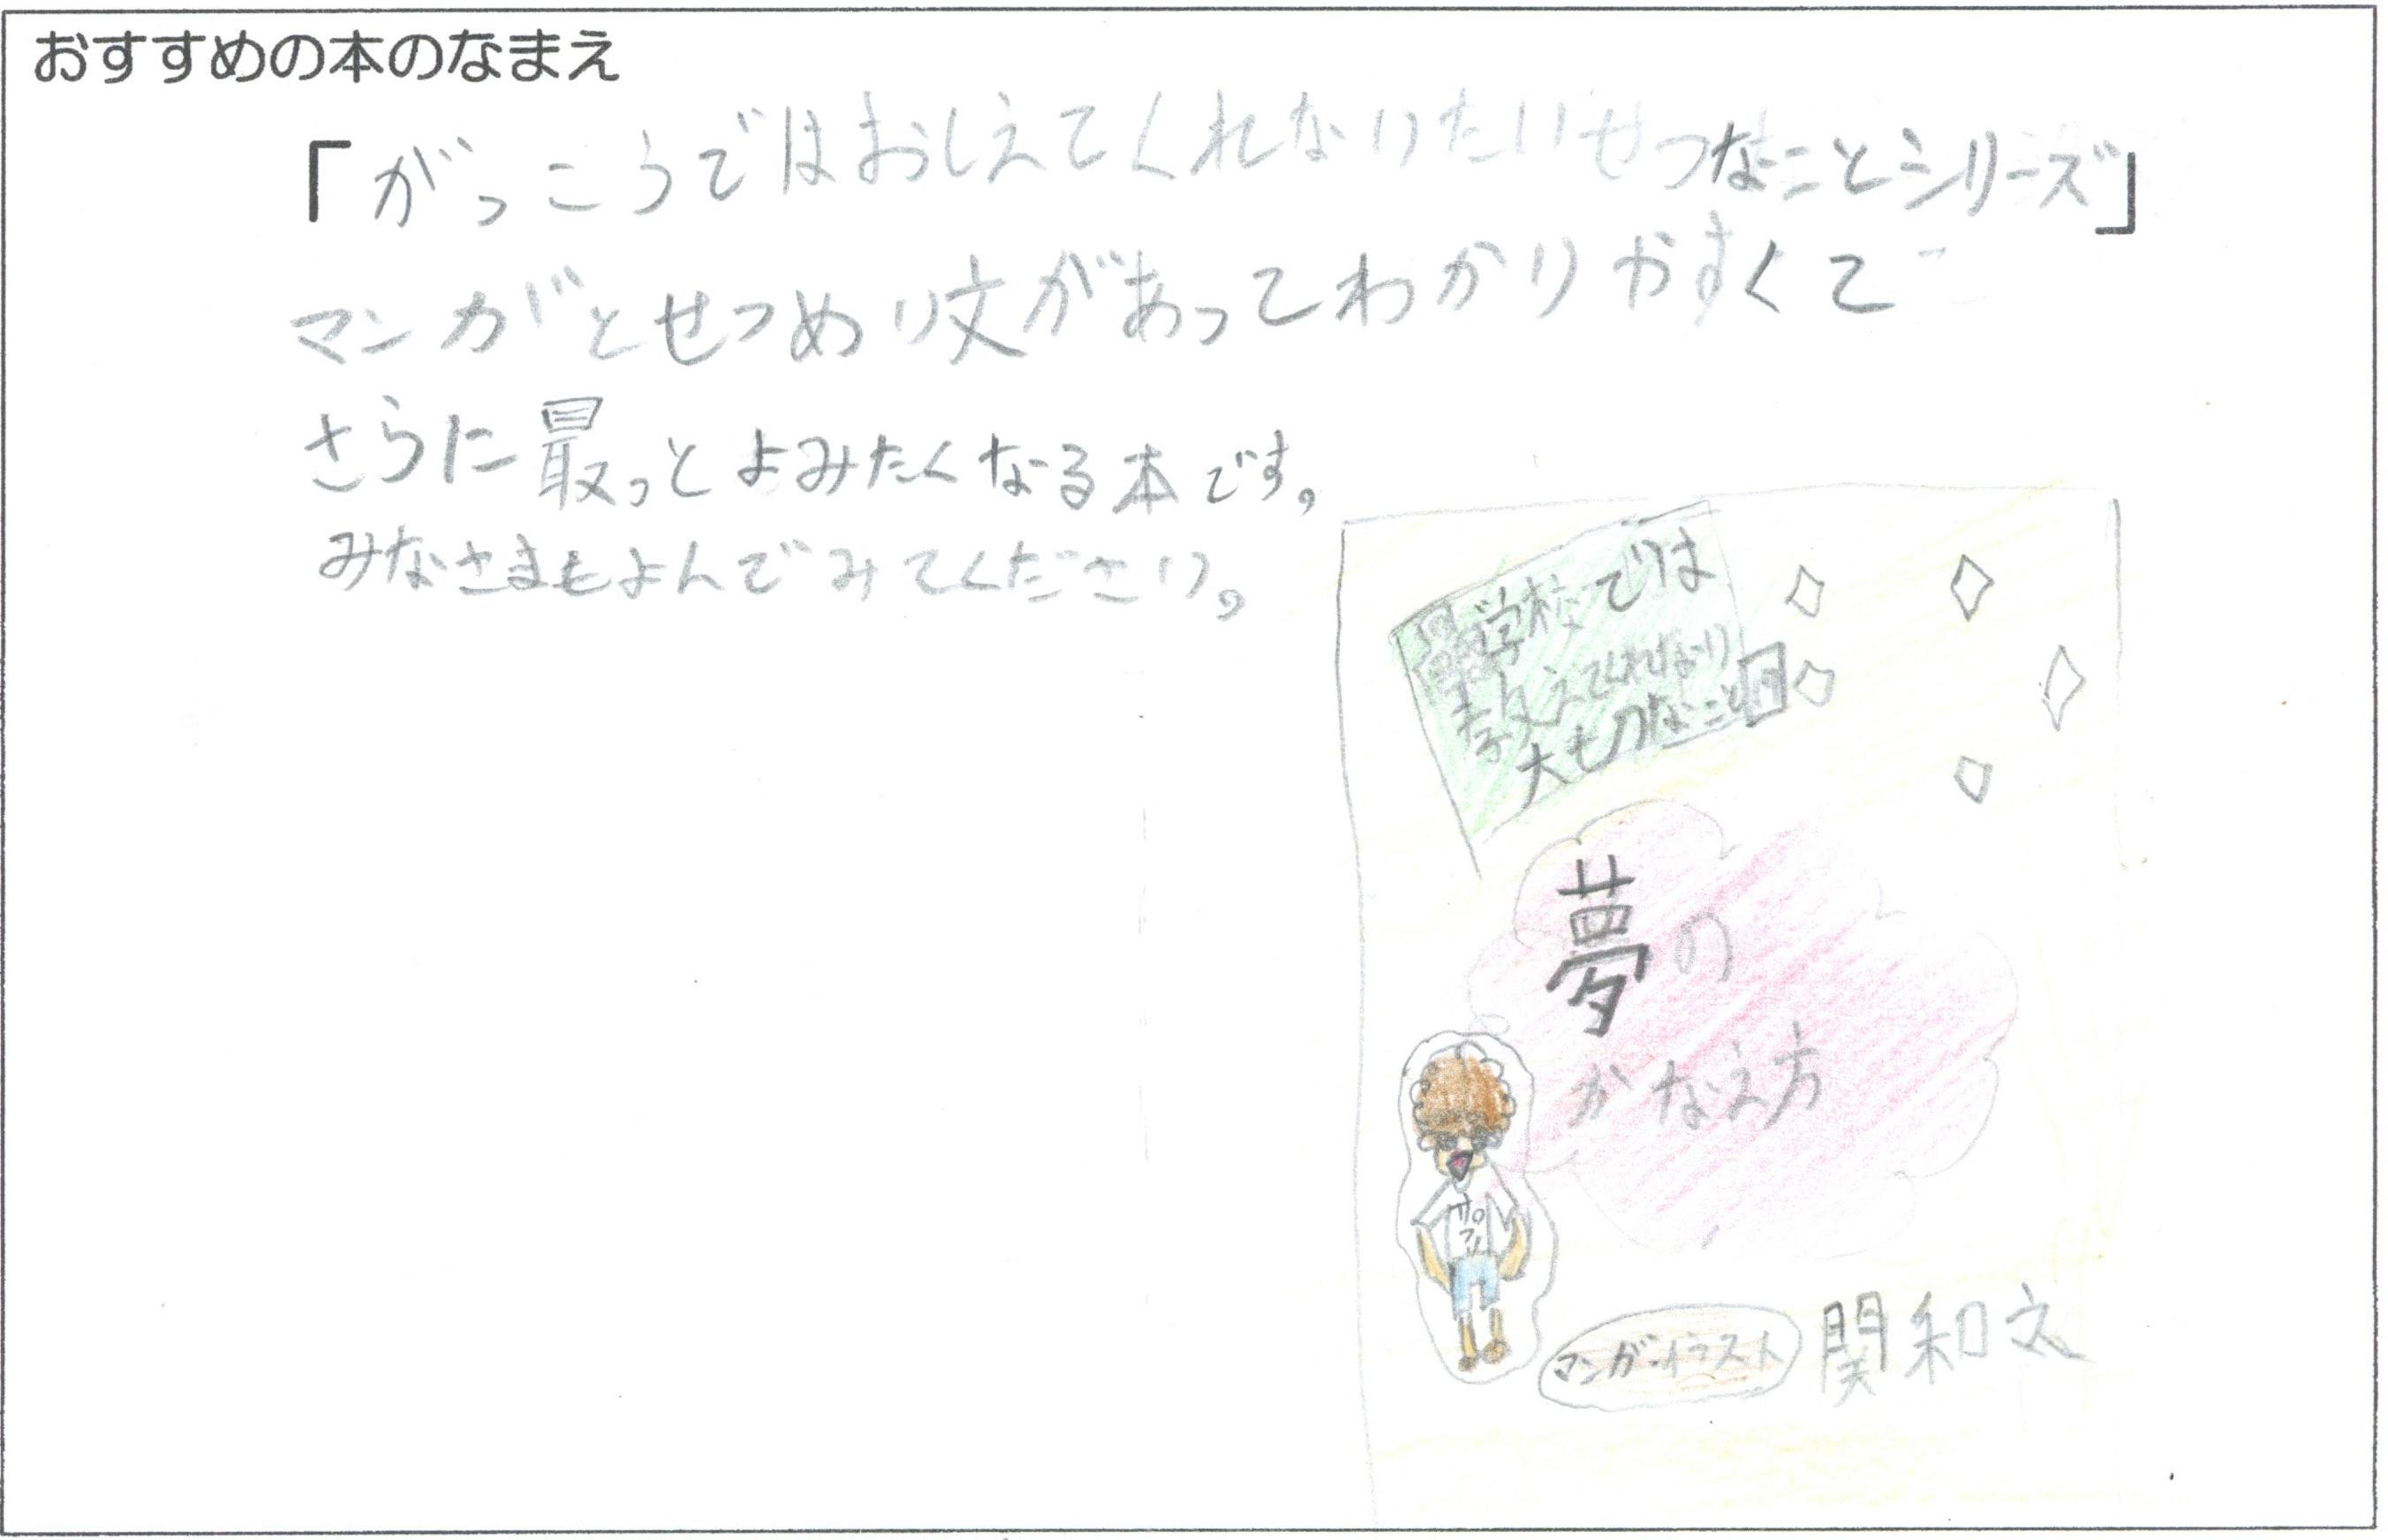 おすすめの本のなまえ
「がっこうではおしえてくれないたいせつなことシリーズ」
マンガとせつめい文があってわかりやすくて
さらに最っとよみたくなる本です。
みなさまもよんでみてください。
学校では
教えてくれない
大切なこと
夢の
かなえ方
マンガ・イラスト
関和之